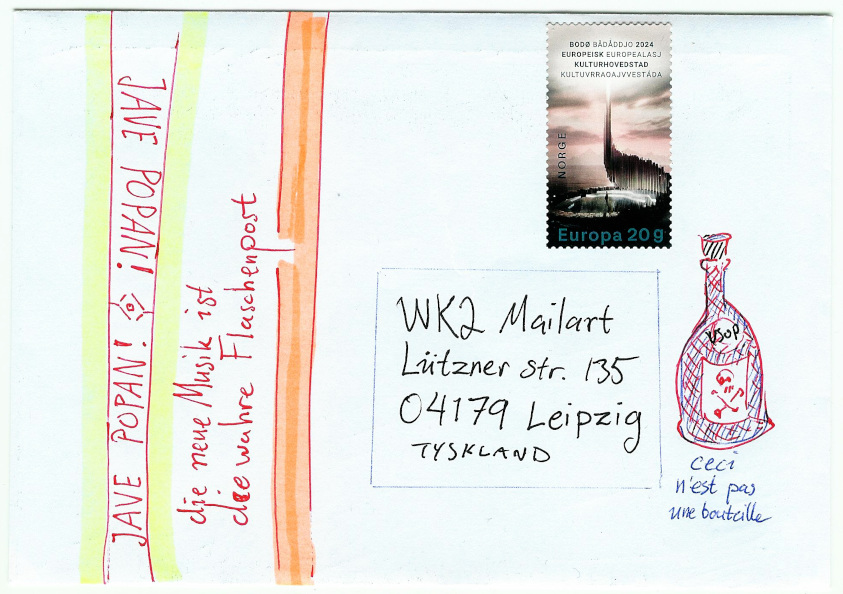 JAVE POPAN!
JAVE POPAN!
die neue Musik ist
die wahre Flaschenpost
BODØ BÅDÅDDJO 2024
EUROPEISK EUROPEALASJ
KULTURHOVEDSTAD
KULTUVRRAOAJVVESTÁDA
NORGE
Europa 20g
WK2 Mailart
Lützner str. 135
04179 Leipzig
TYSKLAND
VSOP
ceci
n'est pas
une bouteille